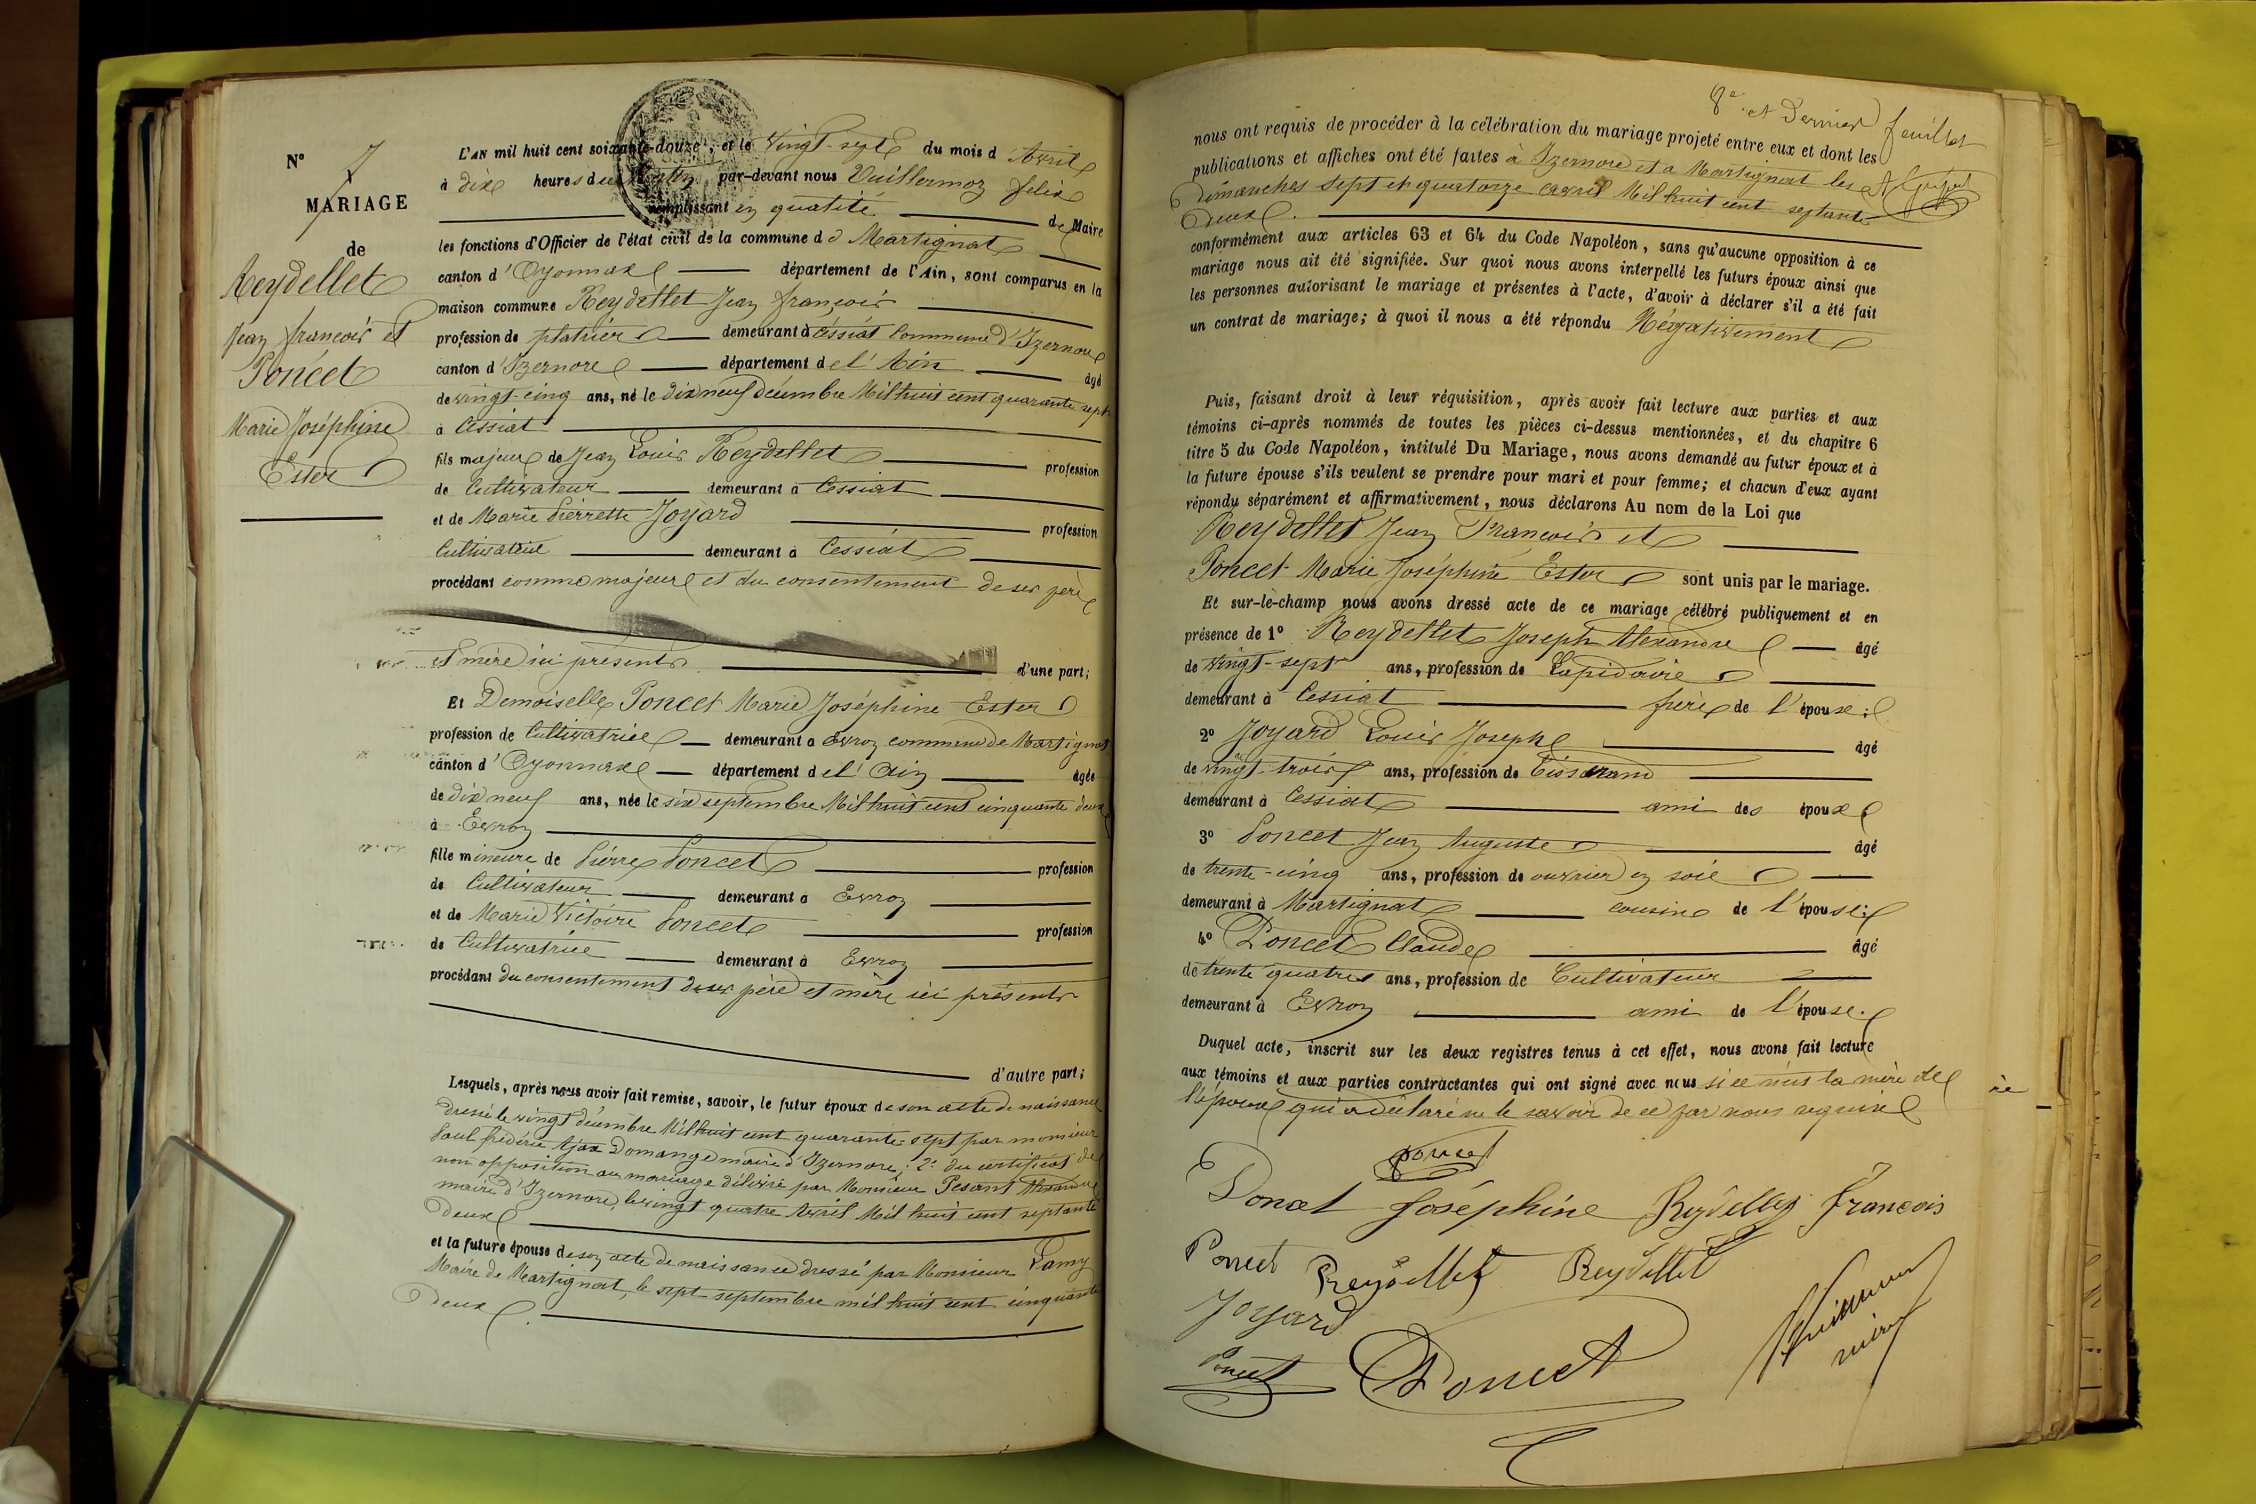 N° 7
MARIAGE
de
Reydellet
Jean françois et
Poncet
Marie Joséphine
Ester
L'AN mil huit cent soixante-douze, et le vingt-sept du mois d'Avril
à dix heures du matin par-devant nous Vuillermoz felix
remplissant en qualité de Maire
les fonctions d'Officier de l'état civil de la commune d e Martignat
canton d'Oyonnax département de l'Ain, sont comparus en la
maison commune Reydellet Jean françois
profession de platrier demeurant à Cessiat Commune d'Izernore
canton d'Izernore département de l'Ain âgé
de vingt-cinq ans, né le dix neuf décembre Mil huit cent quarante sept
à Cessiat
fils majeur de Jean Louis Reydellet profession
de Cultivateur demeurant à Cessiat
et de Marie Pierrette Joyard profession
Cultivatrice demeurant à Cessiat
procédant comme majeur et du consentement de ses père
et mère ici présents d'une part;
Et Demoiselle Poncet Marie Joséphine Ester
profession de Cultivatrice demeurant à Evron commune de Martignat
canton d'Oyonnax département de l'Ain âgée
de dix neuf ans, née le six septembre Mil huit cent cinquante deux
à Evron
fille mineure de Pierre Poncet profession
de Cultivateur demeurant à Evron
et de Marie Victoire Poncet profession
de Cultivatrice demeurant à Evron
procédant du consentement de ses père et mère ici présents
d'autre part;
Lesquels, après nous avoir fait remise, savoir, le futur époux de son acte de naissance
dressé le vingt décembre Mil huit cent quarante-sept par monsieur
Paul frédéric Ajax Domange maire d'Izernore; 2° du certificat de
non opposition au mariage délivré par Monsieur Pesant Alexandre
maire d'Izernore, le vingt quatre Avril Mil huit cent septante
Deux
et la future épouse de son acte de naissance dressé par Monsieur Lamy
Maire de Martignat, le sept septembre mil huit cent cinquante
Deux.
8e et Dernier feuillet
nous ont requis de procéder à la célébration du mariage projeté entre eux et dont les
publications et affiches ont été faites à Izernore et a Martignat les
Dimanches sept et quatorze avril Mil huit cent septante
Deux.
conformément aux articles 63 et 64 du Code Napoléon, sans qu'aucune opposition à ce
mariage nous ait été signifiée. Sur quoi nous avons interpellé les futurs époux ainsi que
les personnes autorisant le mariage et présentes à l'acte, d'avoir à déclarer s'il a été fait
un contrat de mariage; à quoi il nous a été répondu Négativement
Puis, faisant droit à leur réquisition, après avoir fait lecture aux parties et aux
témoins ci-après nommés de toutes les pièces ci-dessus mentionnées, et du chapitre 6
titre 5 du Code Napoléon, intitulé Du Mariage, nous avons demandé au futur époux et à
la future épouse s'ils veulent se prendre pour mari et pour femme; et chacun d'eux ayant
répondu séparément et affirmativement, nous déclarons Au nom de la Loi que
Reydellet Jean François et
Poncet Marie Joséphine Ester sont unis par le mariage.
Et sur-le-champ nous avons dressé acte de ce mariage célébré publiquement et en
présence de 1° Reydellet Joseph Alexandre âgé
de vingt-sept ans, profession de Lapidaire
demeurant à Cessiat frère de l'époux;
2° Joyard Louis Joseph âgé
de vingt-trois ans, profession de Tisserand
demeurant à Cessiat ami des époux
3° Poncet Jean Auguste âgé
de trente-cinq ans, profession de ouvrier en soie
demeurant à Martignat cousin de l'épouse;
4° Poncet Claude âgé
de trente quatre ans, profession de Cultivateur
demeurant à Evron ami de l'épouse.
Duquel acte, inscrit sur les deux registres tenus à cet effet, nous avons fait lecture
aux témoins et aux parties contractantes qui ont signé avec nous si ce n'est la mère de
l'époux qui a déclaré ne le savoir de ce par nous requise
Poncet
Poncet Joséphine Reydellet François
Poncet Reydellet Reydellet
Joyard
Poncet Poncet